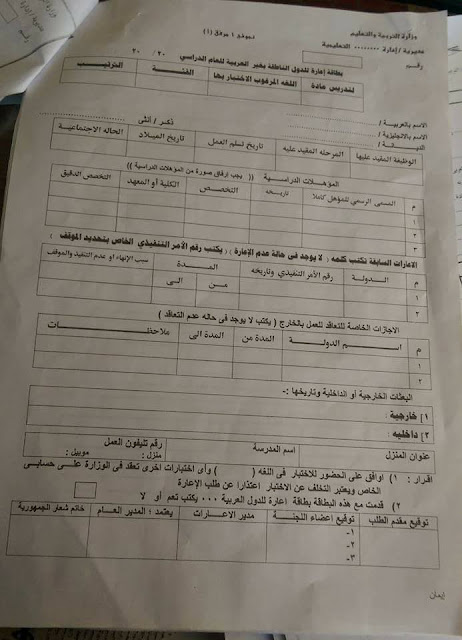 وزارة التربية والتعليم
نموذج ١ مرفق (١)
مديرية / إدارة ........ التعليمية
رقم
بطاقة إعارة للدول الناطقة بغير العربية للعام الدراسي ٢٠ / ٢٠
لتدريس مادة
اللغه المرغوب الاختبار بها
الفئة
الترتيب
الاسم بالعربية /
ذكر / أنثى
الاسم بالانجليزية /
الديانة /
الوظيفة المقيد عليها
المرحله المقيد عليه
تاريخ تسلم العمل
تاريخ الميلاد
الحاله الاجتماعية
المؤهلات الدراسية (( يجب إرفاق صورة من المؤهلات الدراسية ))
م
المسمى الرسمي للمؤهل كاملا
تاريخه
التخصص
الكلية أو المعهد
التخصص الدقيق
١
٢
٣
الاعارات السابقة تكتب كلمه ( لا يوجد فى حالة عدم الإعارة ) ( يكتب رقم الأمر التنفيذي الخاص بتحديد الموقف )
م
الدولة
رقم الأمر التنفيذي وتاريخه
المدة
من
الى
سبب الإنهاء او عدم التنفيذ والموقف
١
٢
الاجازات الخاصة للتعاقد للعمل بالخارج ( يكتب لا يوجد فى حاله عدم التعاقد )
م
اسم الدولة
المدة من
المدة الى
ملاحظات
١
٢
البعثات الخارجية أو الداخلية وتاريخها :-
١] خارجية :
٢] داخليه :
عنوان المنزل
اسم المدرسة
رقم تليفون العمل
منزل :
موبيل :
اقرار : ١) اوافق على الحضور للاختبار فى اللغه ( ) وأى اختبارات اخرى تعقد فى الوزارة على حسابى
الخاص ويعتبر التخلف عن الاختبار اعتذارا عن طلب الإعارة
٢) قدمت مع هذه البطاقة بطاقة إعارة للدول العربية ... يكتب نعم أو لا
توقيع مقدم الطلب
توقيع اعضاء اللجنة
مدير الاعارات
يعتمد ؛ المدير العام
خاتم شعار الجمهورية
١-
٢-
٣-
إيمان